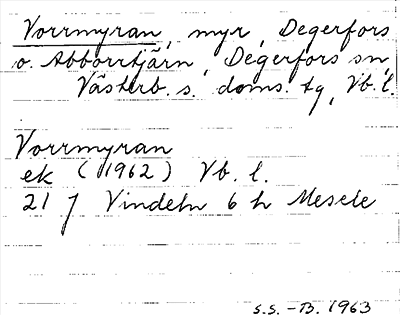 Vorrmyran, myr, Degerfors
o. Abborrtjärn, Degerfors sn,
Västerb. s. doms. tg, Vb. l.
Vorrmyran
ek (1962) Vb. l.
21 J Vindeln 6 h Mesele
S.S. - B. 1963